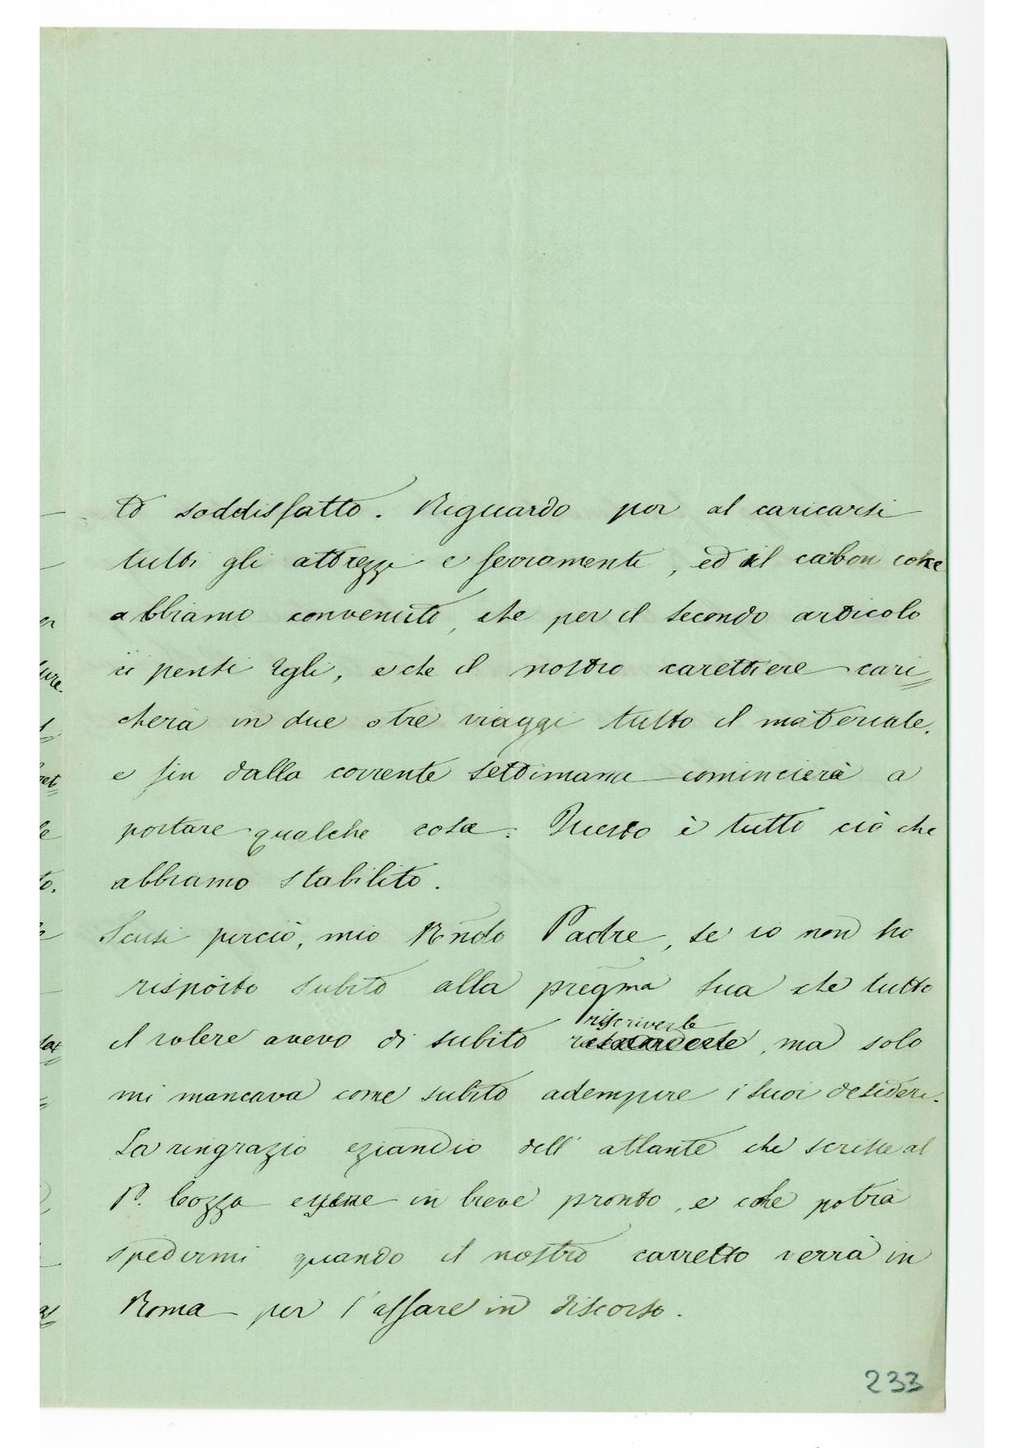 to soddisfatto. Riguardo poi al caricarsi
tutti gli attrezzi e ferramenti, ed il cabon coke
abbiamo convenuto, che per il secondo articolo
ci pensi Egli, e che il nostro carettiere cari=
cherà in due o tre viaggi tutto il materiale,
e fin dalla corrente settimana comincierà a
portare qualche cosa. Questo è tutto ciò che
abbiamo stabilito.
Scusi perciò, mio Rndo Padre, se io non ho
risposto subito alla pregma sua che tutto
riscriverle
il volere avevo di subito, ma solo
mi mancava come subito adempire i suoi desideri.
La ringrazio eziandio dell' atlante che scrisse al
P. Cozza essere in breve pronto, e che potrà
spedirmi quando il nostro carretto verrà in
Roma per l'affare in discorso.
233